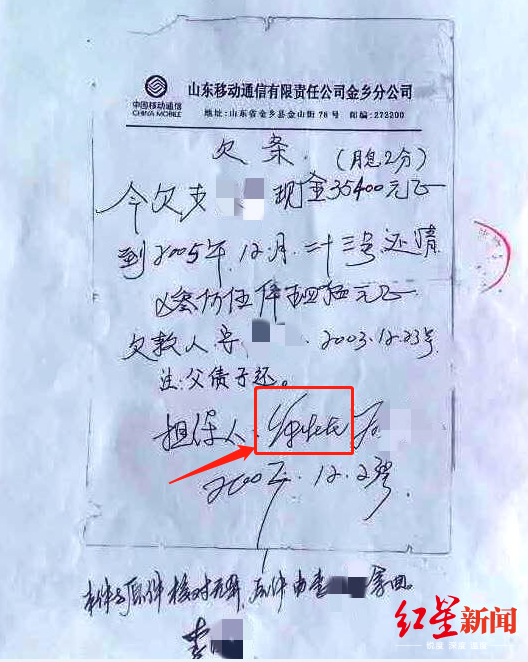 中国移动通信
CHINA MOBILE
山东移动通信有限责任公司金乡分公司
地址:山东省金乡县金山街78号 邮编:272200
欠条
(月息2分)
今欠 现金35400元正
到2005年.12月.二十三号还清
元正
欠款人 2003.12.23号
注:父债子还。
担保人:
12.23号
本件与原件核对无异,原件由李 拿回
李
红星新闻